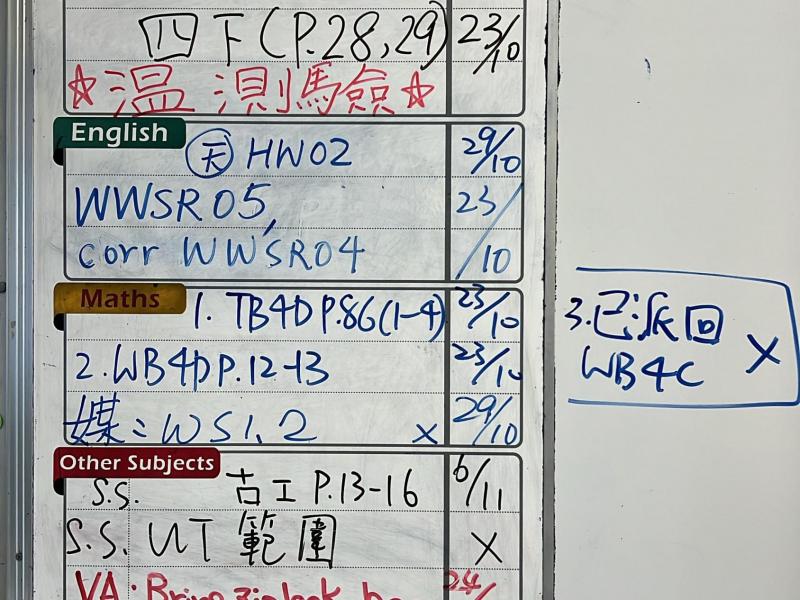 四下(P.28,29) 23/10
☆溫 測馬險☆
English
天 HW02 29/10
WWSR05, 23
corr WWSR04 /10
Maths
1. TB4D P.86(1-4) 23/10
2. WB4D P.12-13 23/10
媒: WS1, 2 x 29/10
3. 已派回 x
WB4C
Other Subjects
S.S. 古工 P.13-16 6/11
S.S. UT 範圍 x
VA: Bring ziplock 24/